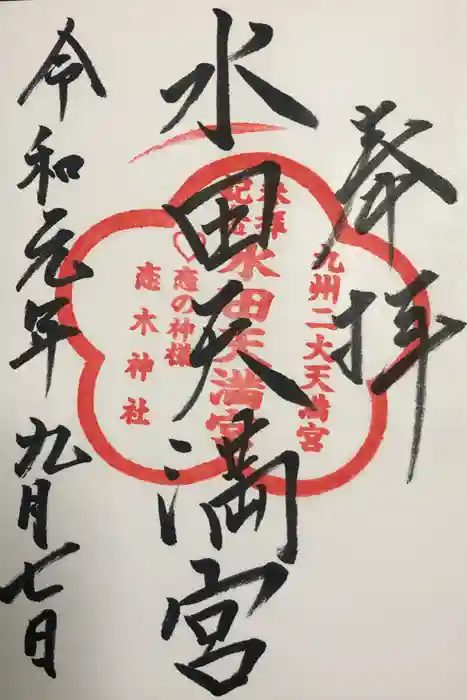 奉拝
水田天満宮
令和元年九月七日
九州二大天満宮
参拝
記念
水田天満宮
♡恋の神様
恋木神社